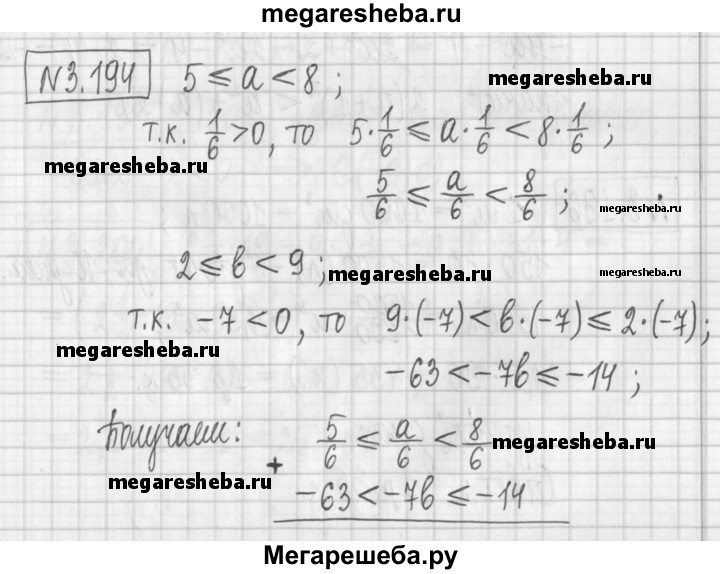 megaresheba.ru
N3.194 5 ≤ a < 8 ;
megaresheba.ru
т.к. 1/6 > 0, то 5·1/6 ≤ a·1/6 < 8·1/6 ;
megaresheba.ru
5/6 ≤ a/6 < 8/6 ;
megaresheba.ru
2 ≤ в < 9 ;
megaresheba.ru
megaresheba.ru
т.к. -7 < 0, то 9·(-7) < в·(-7) ≤ 2·(-7);
megaresheba.ru
-63 < -7в ≤ -14 ;
Получаем: 5/6 ≤ a/6 < 8/6
megaresheba.ru
+
megaresheba.ru
-63 < -7в ≤ -14
Мегарешеба.ру